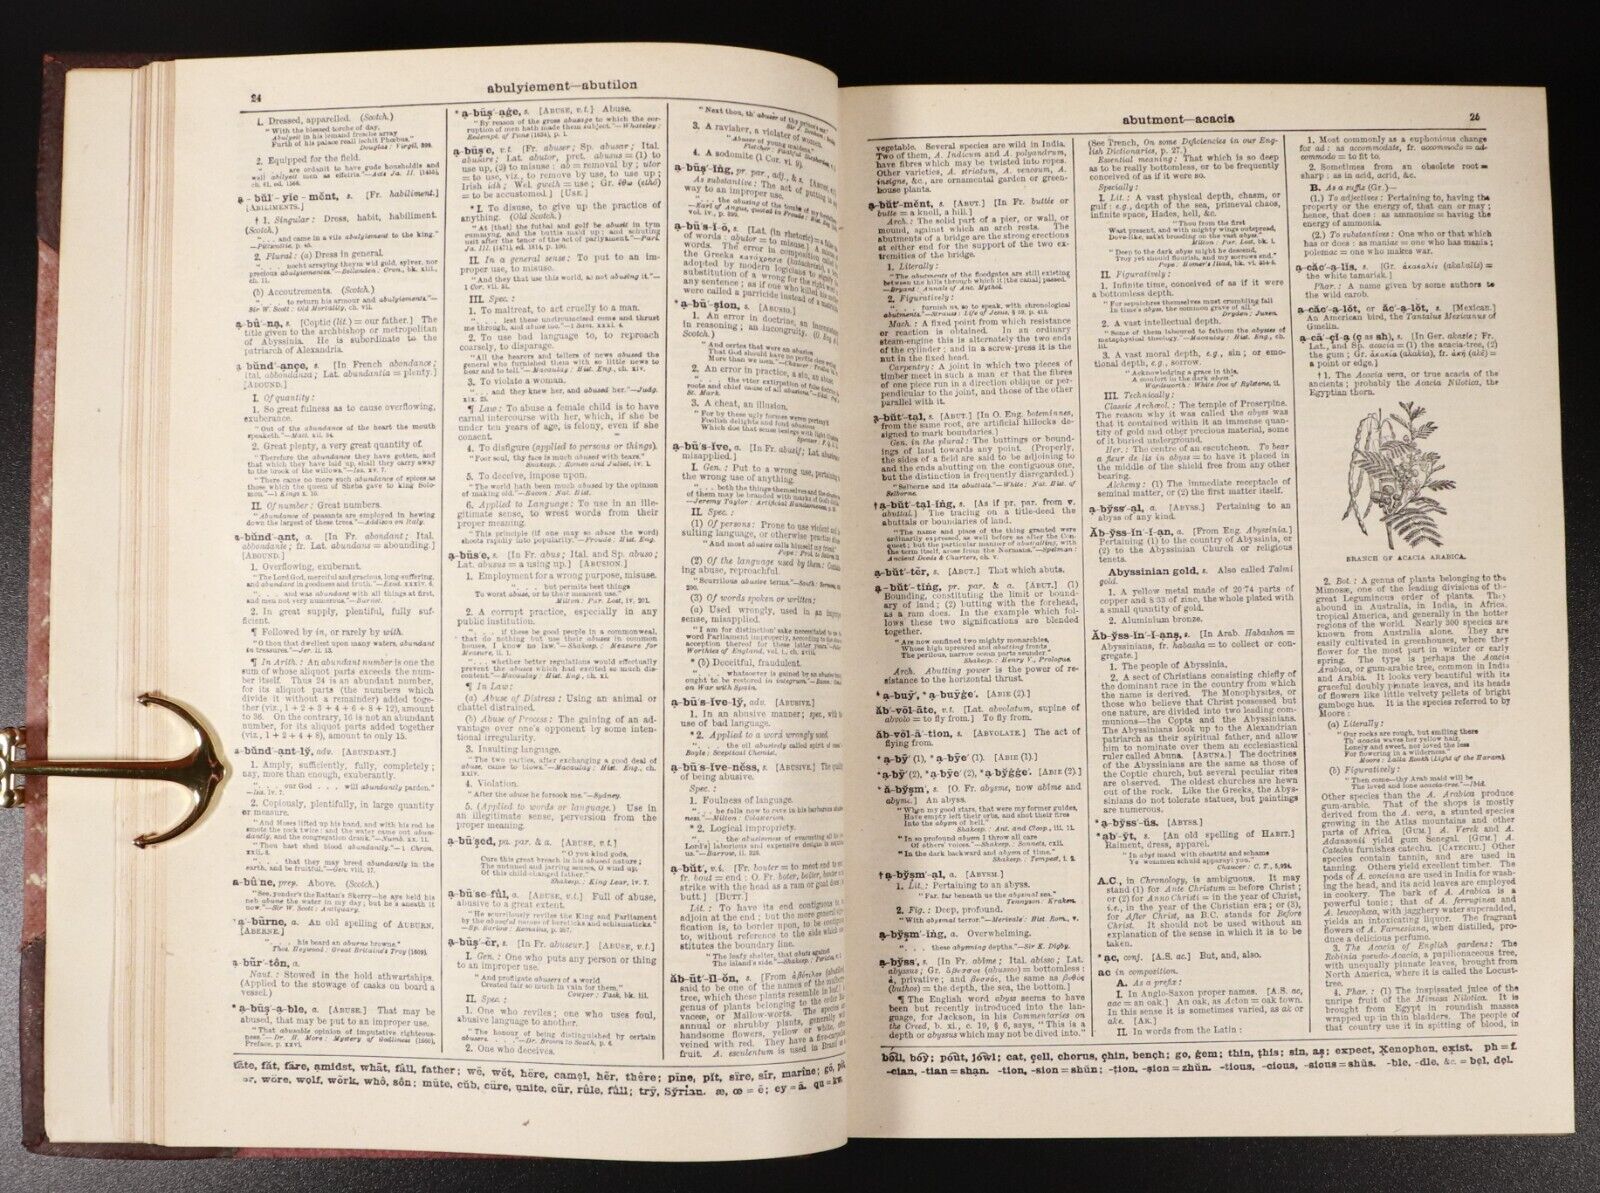 24
abulyiement—abutilon
1. Dressed, apparelled. (Scotch.)
"With the blessed torche of day,
Abulyeit in his lemand fresche array
Furth of his palace reall ischit Phœbus."
Douglas: Virgil, 399.
2. Equipped for the field.
a-bül'-yie-mënt, s. [Fr. habiliment.]
[ABILIMENTS.]
† 1. Singular: Dress, habit, habiliment.
(Scotch.)
". . . and came in a vile abulyiement to the king."
—Pitscottie, p. 45.
2. Plural: (a) Dress in general.
(b) Accoutrements. (Scotch.)
". . . to return his armour and abulyiements."—
Sir W. Scott: Old Mortality, ch. vii.
a-bü'-na, s. [Coptic (lit.) = our father.] The
title given to the archbishop or metropolitan
of Abyssinia. He is subordinate to the
patriarch of Alexandria.
a-bünd'-ançe, s. [In French abondance;
Ital. abbondanza; Lat. abundantia = plenty.]
[ABOUND.]
I. Of quantity:
1. So great fulness as to cause overflowing,
exuberance.
"Out of the abundance of the heart the mouth
speaketh."—Matt. xii. 34.
2. Great plenty, a very great quantity of.
"Therefore the abundance they have gotten, and
that which they have laid up, shall they carry away
to the brook of the willows."—Isa. xv. 7.
"There came no more such abundance of spices as
those which the queen of Sheba gave to king Solo-
mon."—1 Kings x. 10.
II. Of number: Great numbers.
"Abundance of peasants are employed in hewing
down the largest of these trees."—Addison on Italy.
a-bünd'-ant, a. [In Fr. abondant; Ital.
abbondante; fr. Lat. abundans = abounding.]
[ABOUND.]
1. Overflowing, exuberant.
"The Lord God, merciful and gracious, long-suffering,
and abundant in goodness and truth."—Exod. xxxiv. 6.
2. In great supply, plentiful, fully suf-
ficient.
¶ Followed by in, or rarely by with.
"O thou that dwellest upon many waters, abundant
in treasures."—Jer. li. 13.
¶ In Arith.: An abundant number is one the
sum of whose aliquot parts exceeds the num-
ber itself. Thus 24 is an abundant number,
for its aliquot parts (the numbers which
divide it without a remainder) added toge-
ther (viz., 1 + 2 + 3 + 4 + 6 + 8 + 12), amount
to 36. On the contrary, 16 is not an abundant
number, for its aliquot parts added together
(viz., 1 + 2 + 4 + 8), amount to only 15.
a-bünd'-ant-ly, adv. [ABUNDANT.]
1. Amply, sufficiently, fully, completely;
nay, more than enough, exuberantly.
". . . our God . . . will abundantly pardon."
—Isa. lv. 7.
2. Copiously, plentifully, in large quantity
or measure.
"And Moses lifted up his hand, and with his rod he
smote the rock twice: and the water came out abun-
dantly, and the congregation drank."—Numb. xx. 11.
"Thou hast shed blood abundantly."—1 Chron.
xxii. 8.
". . . that they may breed abundantly in the
earth, and be fruitful."—Gen. viii. 17.
a-bü'ne, prep. Above. (Scotch.)
*a-bürne, a. An old spelling of AUBURN.
[ABERNE.]
". . . his beard an aburne browne."
Thos. Heywood: Great Britaine's Troy (1609).
a-bür'-tön, a.
Naut.: Stowed in the hold athwartships.
(Applied to the stowage of casks on board a
vessel.)
*a-büş'-a-ble, a. [ABUSE.] That may be
abused, that may be put to an improper use.
"That abusable opinion of imputative righteous-
ness."—Dr. H. More: Mystery of Godliness (1660),
Preface, p. xxvi.
*a-büş'-age, s. [ABUSE, v.t.] Abuse.
"By reason of the gross abusage to which the cor-
ruption of men hath made them subject."—Whateley:
Redempt. of Time (1634), p. 1.
a-büşe, v.t. [Fr. abuser; Sp. abusar; Ital.
abusare; Lat. abutor, pret. abusus = (1) to
use up, (2) to misuse: ab = removal by; utor
= to use, viz., to remove by use, to use up;
Irish ith; Wel. gweth = use; Gr. ἔθω (ethō)
= to be accustomed.] [USE.]
*I. To disuse, to give up the practice of
anything. (Old Scotch.)
II. In a general sense: To put to an im-
proper use, to misuse.
"And they that use this world, as not abusing it."—
1 Cor. vii. 31.
III. Spec.:
1. To maltreat, to act cruelly to a man.
". . . lest these uncircumcised come and thrust
me through, and abuse me."—1 Sam. xxxi. 4.
2. To use bad language to, to reproach
coarsely, to disparage.
"All the hearers and tellers of news abused the
general who furnished them with so little news to
hear and to tell."—Macaulay: Hist. Eng., ch. xiv.
3. To violate a woman.
". . . and they knew her, and abused her."—Judg.
xix. 25.
¶ Law: To abuse a female child is to have
carnal intercourse with her, which, if she be
under ten years of age, is felony, even if she
consent.
4. To disfigure (applied to persons or things).
"Poor soul, thy face is much abused with tears."
Shakesp.: Romeo and Juliet, iv. 1.
5. To deceive, impose upon.
"The world hath been much abused by the opinion
of making old."—Bacon: Nat. Hist.
6. Applied to Language: To use in an ille-
gitimate sense, to wrest words from their
proper meaning.
"This principle (if one may so abuse the word)
shoots rapidly into popularity."—Froude: Eng.
a-büs'e, s. [In Fr. abus; Ital. and Sp. abuso;
Lat. abusus = a using up.] [ABUSION.]
1. Employment for a wrong purpose, misuse.
". . . but perverts best things
To worst abuse, or to their meanest use."
Milton: Par. Lost, iv. 201.
2. A corrupt practice, especially in any
public institution.
". . . if these be good people in a commonweal,
that do nothing but use their abuses in common
houses, I know no law."—Shakesp.: Measure for
Measure, ii. 1.
". . . whether better regulations would effectually
prevent the abuses which had excited so much dis-
content."—Macaulay: Hist. Eng., ch. xi.
¶ In Law:
(a) Abuse of Distress: Using an animal or
chattel distrained.
(b) Abuse of Process: The gaining of an ad-
vantage over one's opponent by some inten-
tional irregularity.
3. Insulting language.
"The two parties, after exchanging a good deal of
abuse, came to blows."—Macaulay: Hist. Eng., ch.
xiv.
4. Violation.
"After the abuse he forsook me."—Sydney.
5. (Applied to words or language.) Use in
an illegitimate sense, perversion from the
proper meaning.
a-büşed, pa. par. & a. [ABUSE, v.t.]
"O you kind gods,
Cure this great breach in his abused nature;
The untuned and jarring senses, O wind up,
Of this child-changed father."
Shakesp.: King Lear, iv. 7.
a-büs'e-fül, a. [ABUSE, v.t.] Full of abuse,
abusive to a great extent.
"He scurrilously reviles the King and Parliament
by the abuseful names of hereticks and schismaticks."
—Bp. Barlow: Remains, p. 397.
a-büş'-ër, s. [In Fr. abuseur.] [ABUSE, v.t.]
I. Gen.: One who puts any person or thing
to an improper use.
"And profligate abusers of a world
Created fair so much in vain for them."
Cowper: Task, bk. iii.
II. Spec.:
1. One who reviles; one who uses foul,
abusive language to another.
"The honour of being distinguished by certain
abusers . . ."—Dr. Brown to South, p. 6.
2. One who deceives.
"Next thou, th' abuser of thy prince's ear."
3. A ravisher, a violater of women.
"Abuser of young maidens."
4. A sodomite (1 Cor. vi. 9).
a-büş'-ing, pr. par., adj., & s. [ABUSE, v.t.]
As substantive: The act of putting in any
way to an improper use.
a-bü'ş-ĭ-ō, s. [Lat. (in rhetoric) = a
of words: abutor = to misuse.]
words. The error in composition called by
the Greeks καταχρησις (katachrēsis),
adopted by modern logicians to signify the
substitution of a wrong for the right word in
any sentence; as if one who killed his
were called a parricide instead of a
*a-bü'şion, s. [ABUSIO.]
1. An error in doctrine, an
in reasoning; an incongruity. (O. Eng. &
Scotch.)
2. An error in practice, a sin, an abuse.
3. A cheat, an illusion.
"For by these ugly formes weren portray'd
Foolish delights and fond abusions
Which doe that sense besiege with light illusions."
a-bü's-ive, a. [In Fr. abusif; Lat. abusivus =
misapplied.]
I. Gen.: Put to a wrong use, pertaining to
the wrong use of anything.
II. Spec.:
(1) Of persons: Prone to use violent and in-
sulting language, or otherwise practise abuse.
(2) Of the language used by them: Contain-
ing abuse, reproachful.
(3) Of words spoken or written:
(a) Used wrongly, used in an improper
sense, misapplied.
*(b) Deceitful, fraudulent.
a-bü's-ive-ly, adv. [ABUSIVE.]
1. In an abusive manner; spec., with the
use of bad language.
*2. Applied to a word wrongly used.
a-bü's-ive-nëss, s. [ABUSIVE.] The quality
of being abusive.
Spec.:
1. Foulness of language.
*2. Logical impropriety.
a-büt', v.i. [Fr. bouter = to meet end to end;
fr. bout = end; O. Fr. boter, boiter, bouter =
strike with the head as a ram or goat does;
butt.] [BUTT.]
Lit.: To have its end contiguous to,
adjoin at the end; but the more general sig-
nification is, to border upon, to be contiguous
to, without reference to the side which con-
stitutes the boundary line.
äb-üt'-ĭl-ön, s. [From
said to be one of the names of the mulberry
tree, which these plants resemble in leaf.] A
genus of plants belonging to the order Mal-
vaceæ, or Mallow-worts. The species are
annual or shrubby plants, generally with
handsome flowers, yellow or white, often
veined with red. They have a five-carpelled
fruit. A. esculentum is used in Brazil as a
fāte, făt, fāre, amidst, whät, fâll, father; wē, wĕt, hëre, camel, hër, thêre; pīne, pĭt, sïre, sïr, marine; gō, pŏt,
or, wōre, wolf, wörk, whô, sôn; mūte, cŭb, cüre, unite, cür, rûle, fûll; trȳ, Sy̆rian. æ, œ = ē; ey = ā. qu = kw.
abutment—acacia
25
vegetable. Several species are wild in India.
Two of them, A. Indicum and A. polyandrum,
have fibres which may be twisted into ropes.
Other varieties, A. striatum, A. venosum, A.
insigne, &c., are ornamental garden or green-
house plants.
a-büt'-mënt, s. [ABUT.] [In Fr. buttée or
butte = a knoll, a hill.]
Arch.: The solid part of a pier, or wall, or
mound, against which an arch rests. The
abutments of a bridge are the strong erections
at either end for the support of the two ex-
tremities of the bridge.
1. Literally:
"The abutments of the floodgates are still existing
between the hills through which it [the canal] passed."
—Bryant: Analys of Anc. Mythol.
2. Figuratively:
". . . furnish us, so to speak, with chronological
abutments."—Strauss: Life of Jesus, § 59, p. 413.
Mach.: A fixed point from which resistance
or reaction is obtained. In an ordinary
steam-engine this is alternately the two ends
of the cylinder; and in a screw-press it is the
nut in the fixed head.
Carpentry: A joint in which two pieces of
timber meet in such a man er that the fibres
of one piece run in a direction oblique or per-
pendicular to the joint, and those of the other
parallel with it.
a-büt'-tal, s. [ABUT.] [In O. Eng. botemines,
from the same root, are artificial hillocks de-
signed to mark boundaries.]
Gen. in the plural: The buttings or bound-
ings of land towards any point. (Properly,
the sides of a field are said to be adjoining to
and the ends abutting on the contiguous one,
but the distinction is frequently disregarded.)
"Selborne and its abuttals."—White: Nat. Hist. of
Selborne.
†a-büt'-tal-ĭng, s. [As if pr. par. from v.
abuttal.] The tracing on a title-deed the
abuttals or boundaries of land.
"The name and place of the thing granted were
ordinarily expressed, as well before as after the Con-
quest; but the particular manner of abuttalling, with
the term itself, arose from the Normans."—Spelman:
Ancient Deeds & Charters, ch. v.
a-büt'-tër, s. [ABUT.] That which abuts.
a-büt'-tĭng, pr. par. & a. [ABUT.] (1)
Bounding, constituting the limit or bound-
ary of land; (2) butting with the forehead,
as a ram does. In the example which fol-
lows these two significations are blended
together.
"Are now confined two mighty monarchies,
Whose high upreared and abutting fronts
The perilous, narrow ocean parts asunder."
Shakesp.: Henry V., Prologue.
Arch. Abutting power is the power of re-
sistance to the horizontal thrust.
*a-buy', *a-buyġe'. [ABIE (2).]
äb-vŏl-āte, v.t. [Lat. avolatum, supine of
abvolo = to fly from.] To fly from.
äb-vŏl-ā'-tion, s. [ABVOLATE.] The act of
flying from.
*a-bȳ' (1), *a-bȳe' (1). [ABIE (1).]
*a-bȳ' (2), *a-bȳe' (2), *a-by̆ġġe'. [ABIE (2.)]
*ā-by̆şm', s. [O. Fr. abysme, now abîme and
abyme.] An abyss.
"When my good stars, that were my former guides,
Have empty left their orbs, and shot their fires
Into the abysm of hell."
Shakesp.: Ant. and Cleop., iii. 11.
"In so profound abysm I throw all care
Of others' voices."—Shakesp.: Sonnets, cxii.
"In the dark backward and abysm of time."
Shakesp.: Tempest, i. 2.
†a-by̆şm'-al, a. [ABYSM.]
1. Lit.: Pertaining to an abyss.
"Far, far beneath us the abysmal sea."
Tennyson: Kraken.
2. Fig.: Deep, profound.
"With abysmal terror."—Merivale: Hist. Rom., v.
a-by̆şm'-ĭng, a. Overwhelming.
". . . these abysming depths."—Sir K. Digby.
a-by̆ss', s. [In Fr. abîme; Ital. abisso; Lat.
abyssus; Gr. ἄβυσσος (abussos) = bottomless;
ἀ, privative; and βυσσός, the same as βυθός
(buthos) = the depth, the sea, the bottom.]
¶ The English word abyss seems to have
been but recently introduced into the lan-
guage, for Jackson, in his Commentaries on
the Creed, b. xi., c. 19, § 6, says, "This is a
depth or abyssus which may not be dived into."
(See Trench, On some Deficiencies in our Eng-
lish Dictionaries, p. 27.)
Essential meaning: That which is so deep
as to be really bottomless, or to be frequently
conceived of as if it were so.
Specially:
I. Lit.: A vast physical depth, chasm, or
gulf: e.g., depth of the sea, primeval chaos,
infinite space, Hades, hell, &c.
"Thou from the first
Wast present, and with mighty wings outspread,
Dove-like, satst brooding on the vast abyss."
Milton: Par. Lost, bk. i.
"Deep to the dark abyss might he descend,
Troy yet should flourish, and my sorrows end."
Pope: Homer's Iliad, bk. vi. 354-5.
II. Figuratively:
1. Infinite time, conceived of as if it were
a bottomless depth.
"For sepulchres themselves must crumbling fall
In time's abyss, the common grave of all."
Dryden: Juven.
2. A vast intellectual depth.
"Some of them laboured to fathom the abysses of
metaphysical theology."—Macaulay: Hist. Eng., ch.
iii.
3. A vast moral depth, e.g., sin; or emo-
tional depth, e.g., sorrow.
"Acknowledging a grace in this,
A comfort in the dark abyss."
Wordsworth: White Doe of Rylstone, ii.
III. Technically:
Classic Archæol.: The temple of Proserpine.
The reason why it was called the abyss was
that it contained within it an immense quan-
tity of gold and other precious material, some
of it buried underground.
Her.: The centre of an escutcheon. To bear
a fleur de lis in abyss = to have it placed in
the middle of the shield free from any other
bearing.
Alchemy: (1) The immediate receptacle of
seminal matter, or (2) the first matter itself.
a-by̆ss'-al, a. [ABYSS.] Pertaining to an
abyss of any kind.
Äb-y̆ss-ĭn'-ĭ-an, a. [From Eng. Abyssinia.]
Pertaining (1) to the country of Abyssinia, or
(2) to the Abyssinian Church or religious
tenets.
Abyssinian gold, s. Also called Talmi
gold.
1. A yellow metal made of 90·74 parts of
copper and 8·33 of zinc, the whole plated with
a small quantity of gold.
2. Aluminium bronze.
Äb-y̆ss-ĭn'-ĭ-anş, s. [In Arab. Habashon =
Abyssinians, fr. habasha = to collect or con-
gregate.]
1. The people of Abyssinia.
2. A sect of Christians consisting chiefly of
the dominant race in the country from which
the name is derived. The Monophysites, or
those who believe that Christ possessed but
one nature, are divided into two leading com-
munions—the Copts and the Abyssinians.
The Abyssinians look up to the Alexandrian
patriarch as their spiritual father, and allow
him to nominate over them an ecclesiastical
ruler called Abuna. [ABUNA.] The doctrines
of the Abyssinians are the same as those of
the Coptic church, but several peculiar rites
are observed. The oldest churches are hewn
out of the rock. Like the Greeks, the Abys-
sinians do not tolerate statues, but paintings
are numerous.
*a-by̆ss-ŭs. [ABYSS.]
*ab'-y̆t, s. [An old spelling of HABIT.]
Raiment, dress, apparel.
"In abyt maad with chastité and schame
Ye wommen schuld apparayl you."
Chaucer: C. T., 5,924.
A.C., in Chronology, is ambiguous. It may
stand (1) for Ante Christum = before Christ;
or (2) for Anno Christi = in the year of Christ,
i.e., in the year of the Christian era; or (3),
for After Christ, as B.C. stands for Before
Christ. It should not be used without an
explanation of the sense in which it is to be
taken.
*ac, conj. [A.S. ac.] But, and, also.
ac in composition.
A. As a prefix:
I. In Anglo-Saxon proper names. [A.S. ac,
aac = an oak.] An oak, as Acton = oak town.
In this sense it is sometimes varied, as ak or
ake. [AK.]
II. In words from the Latin:
1. Most commonly as a euphonious change
for ad: as accommodate, fr. accommodo = ad-
commodo = to fit to.
2. Sometimes from an obsolete root =
sharp: as in acid, acrid, &c.
B. As a suffix (Gr.)—
(1.) To adjectives: Pertaining to, having the
property or the energy of, that can or may;
hence, that does: as ammoniac = having the
energy of ammonia.
(2.) To substantives: One who or that which
has or does: as maniac = one who has mania;
polemac = one who makes war.
a-căc'-a-lĭs, s. [Gr. ἀκακαλίς (akakalis) =
the white tamarisk.]
Phar.: A name given by some authors to
the wild carob.
a-căc'-a-lŏt, or ăc'-a-lŏt, s. [Mexican.]
An American bird, the Tantalus Mexicanus of
Gmelin.
a-cā'-çĭ-a (ç as sh), s. [In Ger. akazie; Fr.,
Lat., and Sp. acacia = (1) the acacia-tree, (2)
the gum; Gr. ἀκακία (akakia), fr. ἀκή (akē) =
a point or edge.]
† 1. The Acacia vera, or true acacia of the
ancients; probably the Acacia Nilotica, the
Egyptian thorn.
BRANCH OF ACACIA ARABICA.
2. Bot.: A genus of plants belonging to the
Mimosæ, one of the leading divisions of the
great Leguminous order of plants. They
abound in Australia, in India, in Africa,
tropical America, and generally in the hotter
regions of the world. Nearly 300 species are
known from Australia alone. They are
easily cultivated in greenhouses, where they
flower for the most part in winter or early
spring. The type is perhaps the Acacia
Arabica, or gum-arabic tree, common in India
and Arabia. It looks very beautiful with its
graceful doubly pinnate leaves, and its heads
of flowers like little velvety pellets of bright
gamboge hue. It is the species referred to by
Moore:
(a) Literally:
"Our rocks are rough, but smiling there
Th' acacia waves her yellow hair,
Lonely and sweet, nor loved the less
For flowering in a wilderness."
Moore: Lalla Rookh (Light of the Haram).
(b) Figuratively:
"Then come—thy Arab maid will be
The loved and lone acacia-tree."—Ibid.
Other species than the A. Arabica produce
gum-arabic. That of the shops is mostly
derived from the A. vera, a stunted species
growing in the Atlas mountains and other
parts of Africa. [GUM.] A. Verek and A.
Adansonii yield gum Senegal. [GUM.] A.
Catechu furnishes catechu. [CATECHU.] Other
species contain tannin, and are used in
tanning. Others yield excellent timber. The
pods of A. concinna are used in India for wash-
ing the head, and its acid leaves are employed
in cookery. The bark of A. Arabica is a
powerful tonic; that of A. ferruginea and
A. leucophœa, with jagghery water superadded,
yields an intoxicating liquor. The fragrant
flowers of A. Farnesiana, when distilled, pro-
duce a delicious perfume.
3. The Acacia of English gardens: The
Robinia pseudo-Acacia, a papilionaceous tree,
with unequally pinnate leaves, brought from
North America, where it is called the Locust-
tree.
4. Phar.: (1) The inspissated juice of the
unripe fruit of the Mimosa Nilotica. It is
brought from Egypt in roundish masses
wrapped up in thin bladders. The people of
that country use it in spitting of blood, in
bôil, bôy; pôut, jôwl; cat, çell, chorus, çhin, bençh; go, ġem; thin, this; sin, aş; expect, Xenophon, exist. ph = f.
-cian, -tian = shan. -tion, -sion = shŭn; -ţion, -şion = zhŭn. -tious, -cious, -sious = shŭs. -ble, -dle, &c. = bel, del.